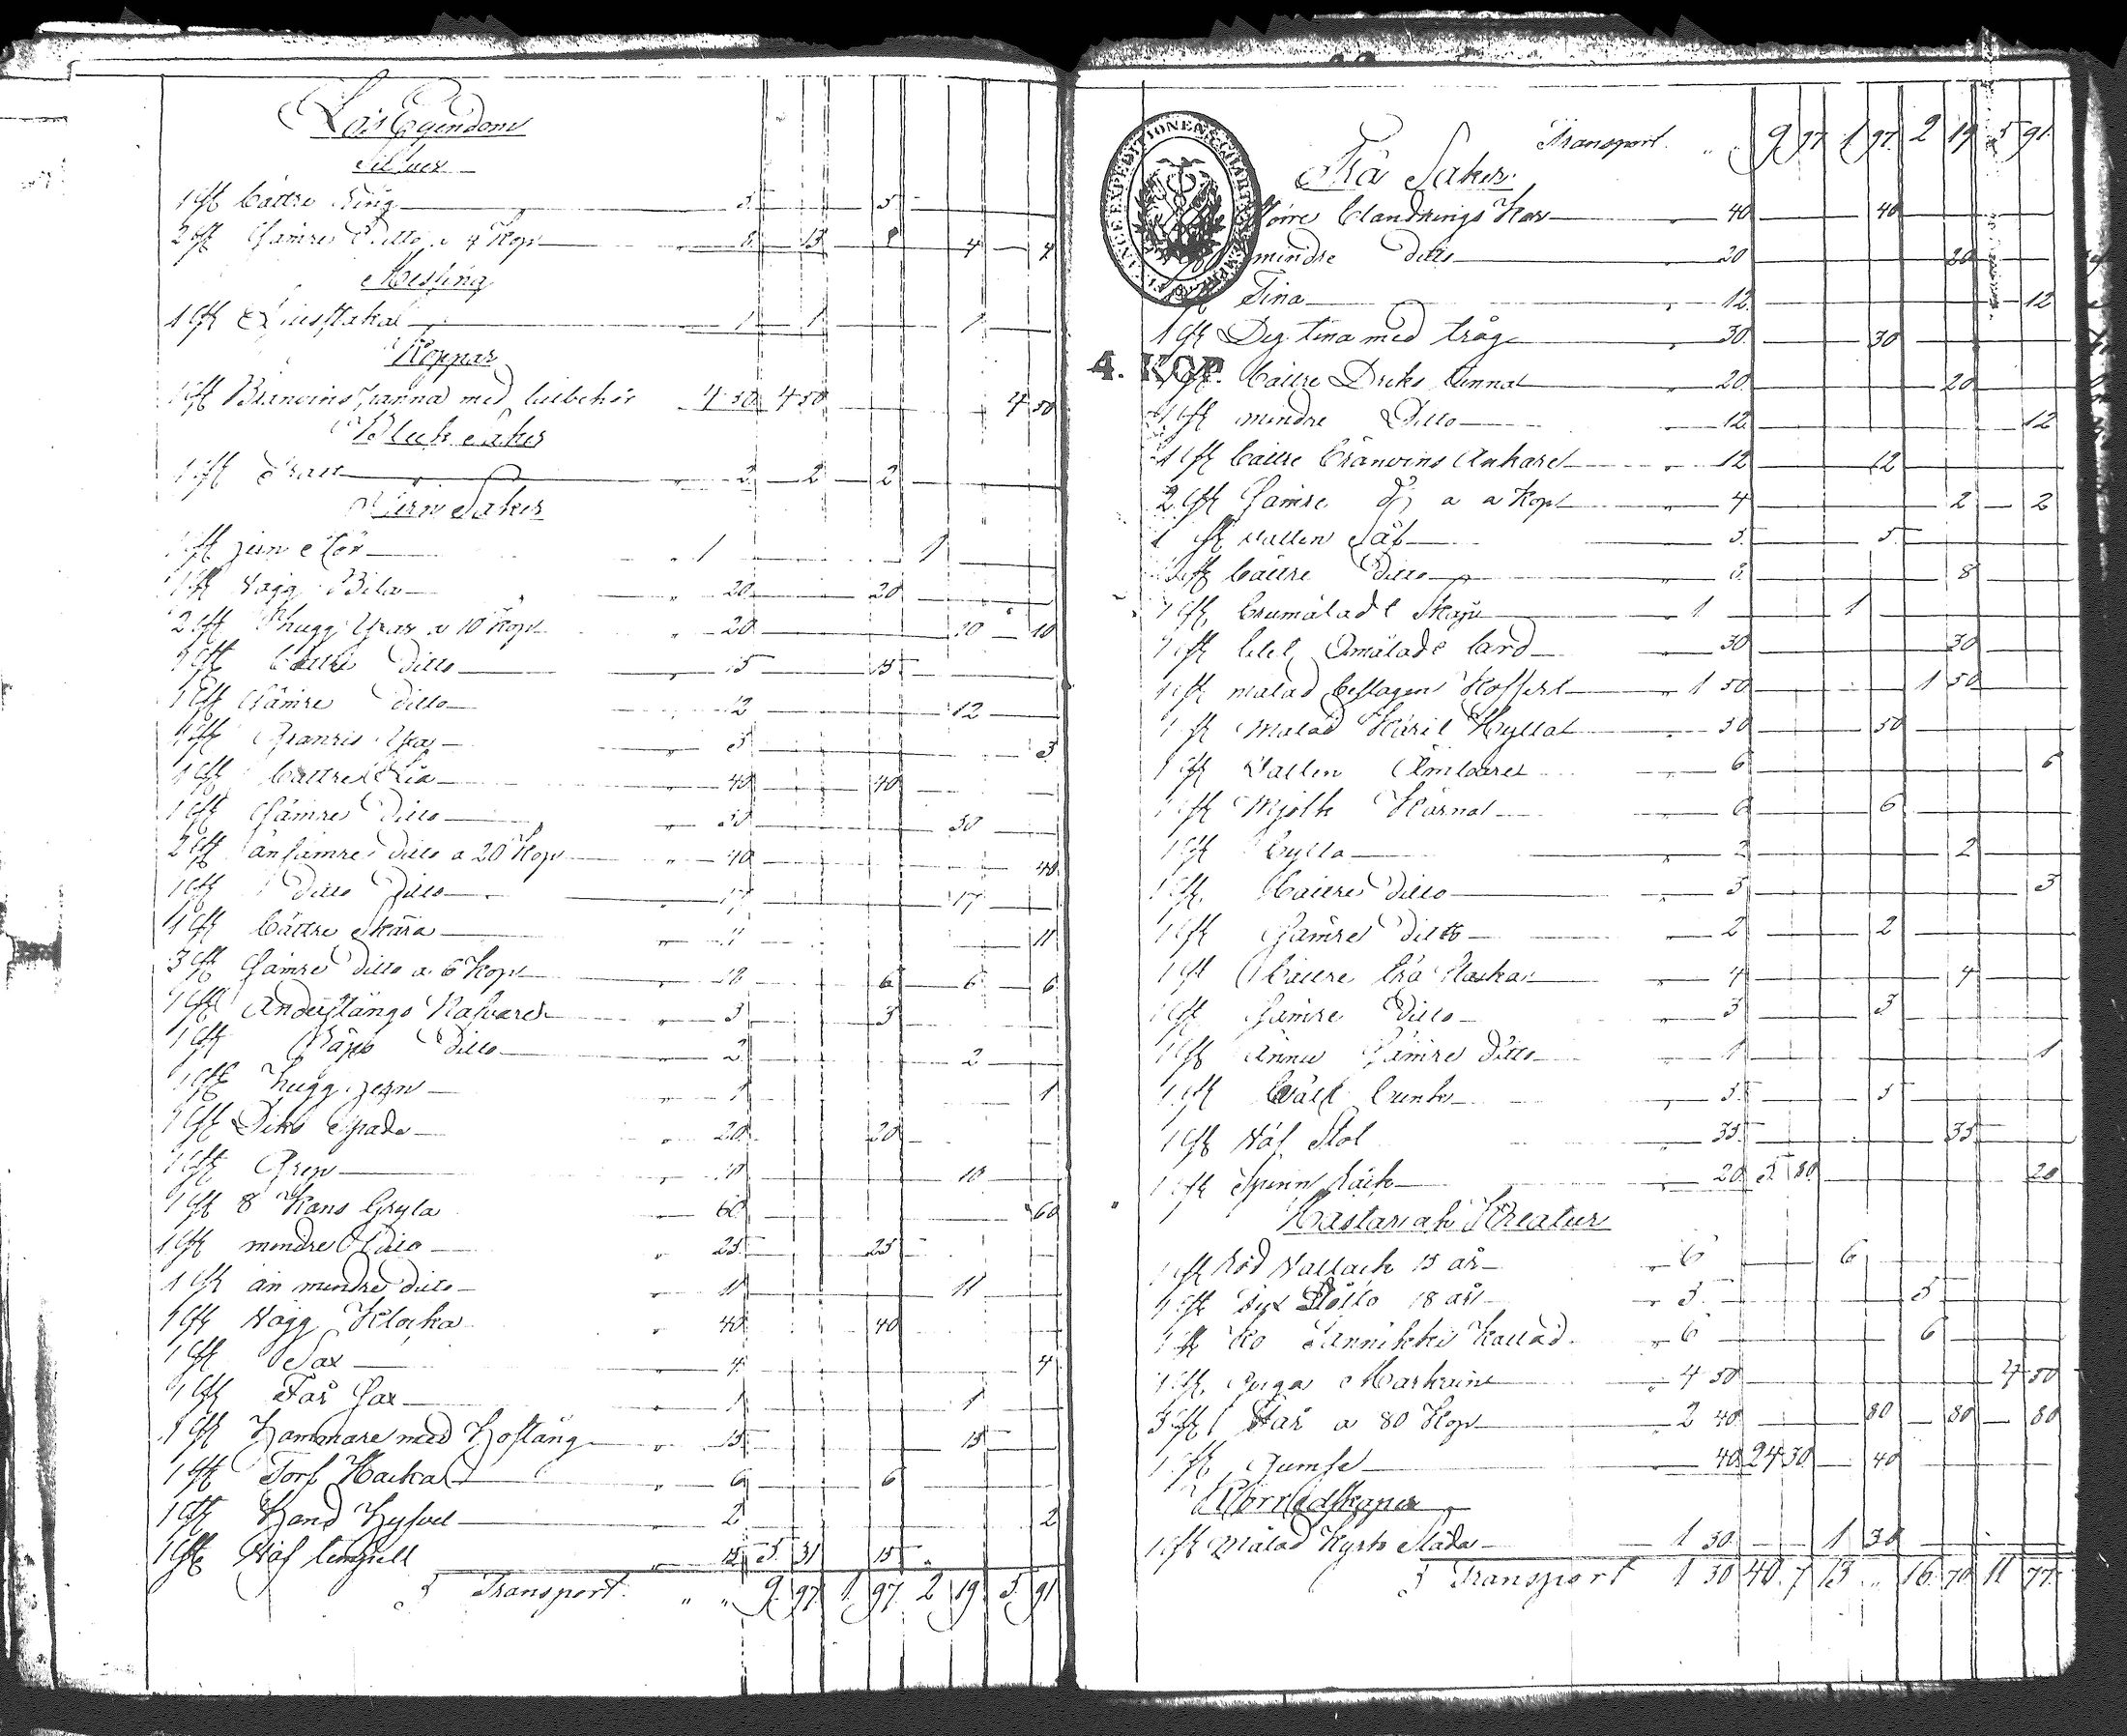 Lös Egendom
Silfver
1 st bättre Ring 5 5
2 st sämre Ditto a 4 Kop 8 13 4 4
Messing
1 st Liusstakal 1 1 1
Koppar
1 st Bränvins panna med tilbehör 4 50 4 50 4 50
Bleck Saker
1 st Tratt 2 2 2
Jern Saker
1 st jern Stör 1 1
1 st Vägg Bila 20 20
2 st Hugg Yxar a 10 Kop 20 10 10
1 st bättre Ditto 15 15
1 st sämre Ditto 12 12
1 st Granris Yxa 3 3
1 st bättre Lia 40 40
1 st sämre Ditto 30 30
2 st än sämre Ditto a 20 Kop 40 40
1 st Ditto Ditto 17 17
1 st bättre Skära 11 11
3 st sämre Ditto a 6 Kop 18 6 6 6
1 st Andustångs Nafvare 3 3
1 st Räfs Ditto 2 2
1 st Hugg jern 1 1
1 st Diks Spade 20 20
1 st Grep 10 10
1 st 8 Kans Gryta 60 60
1 st mindre Ditto 25 25
1 st än mindre Ditto 11 11
1 st Vägg Klocka 40 40
1 st Sax 4 4
1 st Får sax 1 1
1 st Hammare med Hoftång 15 15
1 st Torf Hacka 6 6
1 st Hand Hyfvel 2 2
1 st Väf 15 5 31 15
Transport 9 97 1 97 2 19 5 91
Transport 9 97 1 97 2 19 5 91
Trä Saker
större Clandrings Kar 40 40
mindre Ditto 20 20
Tina 12 12
1 st Deg tina med tråg 30 30
4. KOP
1 st bättre Dricks tunna 20 20
1 st mindre Ditto 12 12
1 st bättre bränvins Ankare 12 12
2 st sämre d:o a 2 Kop 4 2 2
1 st Vatten Såb 5 5
1 st bättre Ditto 8 8
1 st brumåladt Skåp 1 1
1 st litet Omålade bord 30 30
1 st målad beslagen Koffert 1 50 1 50
1 st målad Käril Hylla 50 50
1 st Vatten Ämbare 6 6
1 st Mjölk Kärna 6 6
1 st Bytta 2 2
1 st bättre Ditto 3 3
1 st sämre Ditto 2 2
1 st bättre trä flaska 4 4
1 st sämre Ditto 3 3
1 st ännu sämre Ditto 1 1
1 st bunk 5 5
1 st Väf Stol 35 35
1 st Spinn Råck 20 5 80 20
Hästar ock Kreatur
1 st Röd Vallack 15 år 6 6
1 st 18 år 5 5
1 st Ko Kallad 6 6
1 st Qviga Markaine 4 50 4 50
3 st Får a 80 Kop 2 40 80 80 80
1 st Gumse 40 24 30 40
Körredskaper
1 st målad Kyrk Släda 1 30 1 30
Transport 1 30 40 7 13 " 16 70 11 77